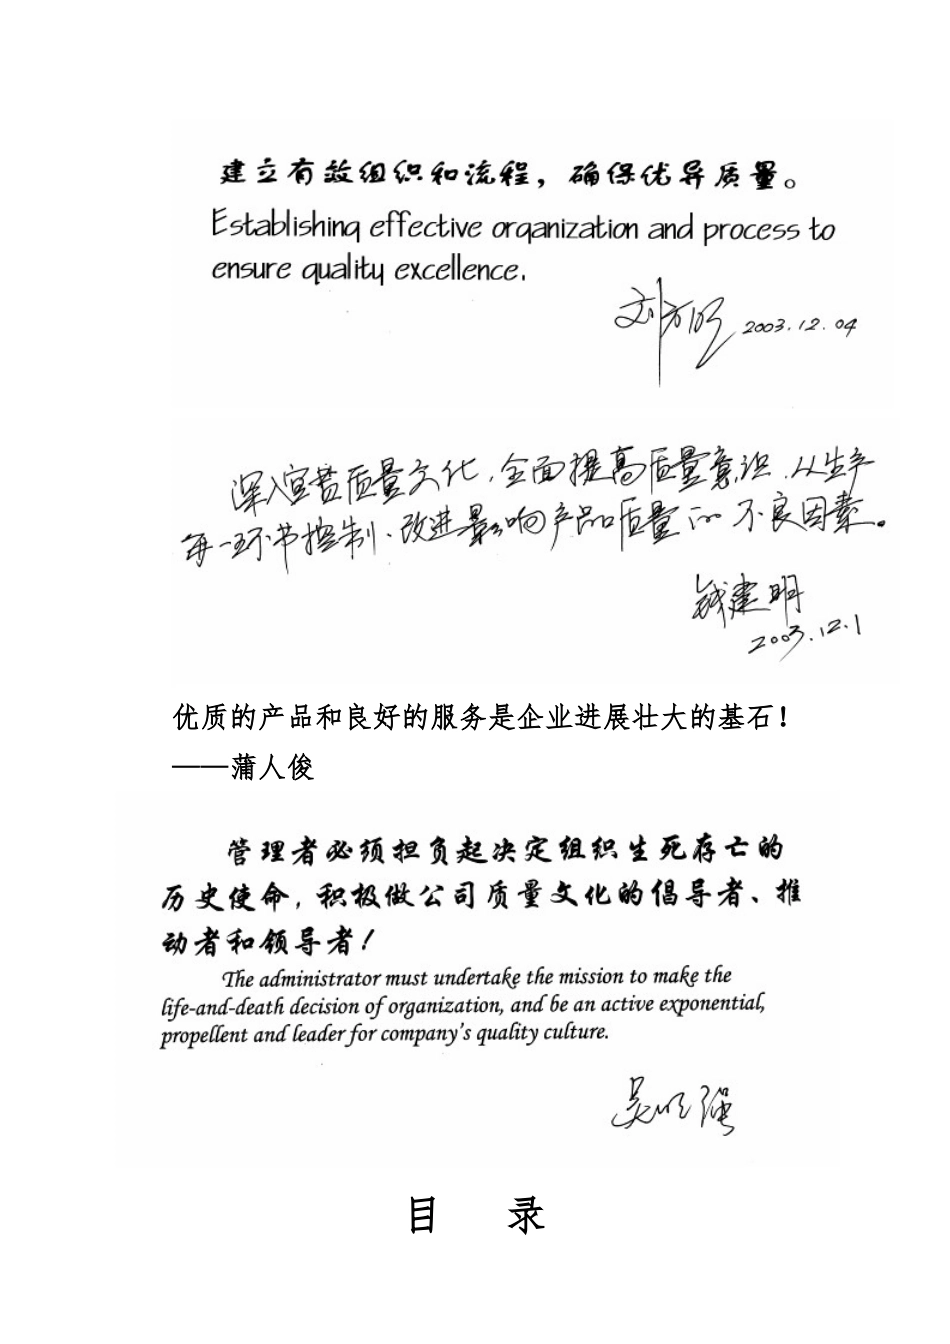 建立有效组织和流程，确保优异质量。
Establishing effective organization and process to
ensure quality excellence.
刘方明 2003.12.04
深入宣贯质量文化，全面提高质量意识，从生产
每一环节控制、改进影响产品质量的不良因素。
钱建明
2003.12.1
优质的产品和良好的服务是企业进展壮大的基石！
——蒲人俊
管理者必须担负起决定组织生死存亡的
历史使命，积极做公司质量文化的倡导者、推
动者和领导者！
The administrator must undertake the mission to make the
life-and-death decision of organization, and be an active exponential,
propellent and leader for company's quality culture.
目 录